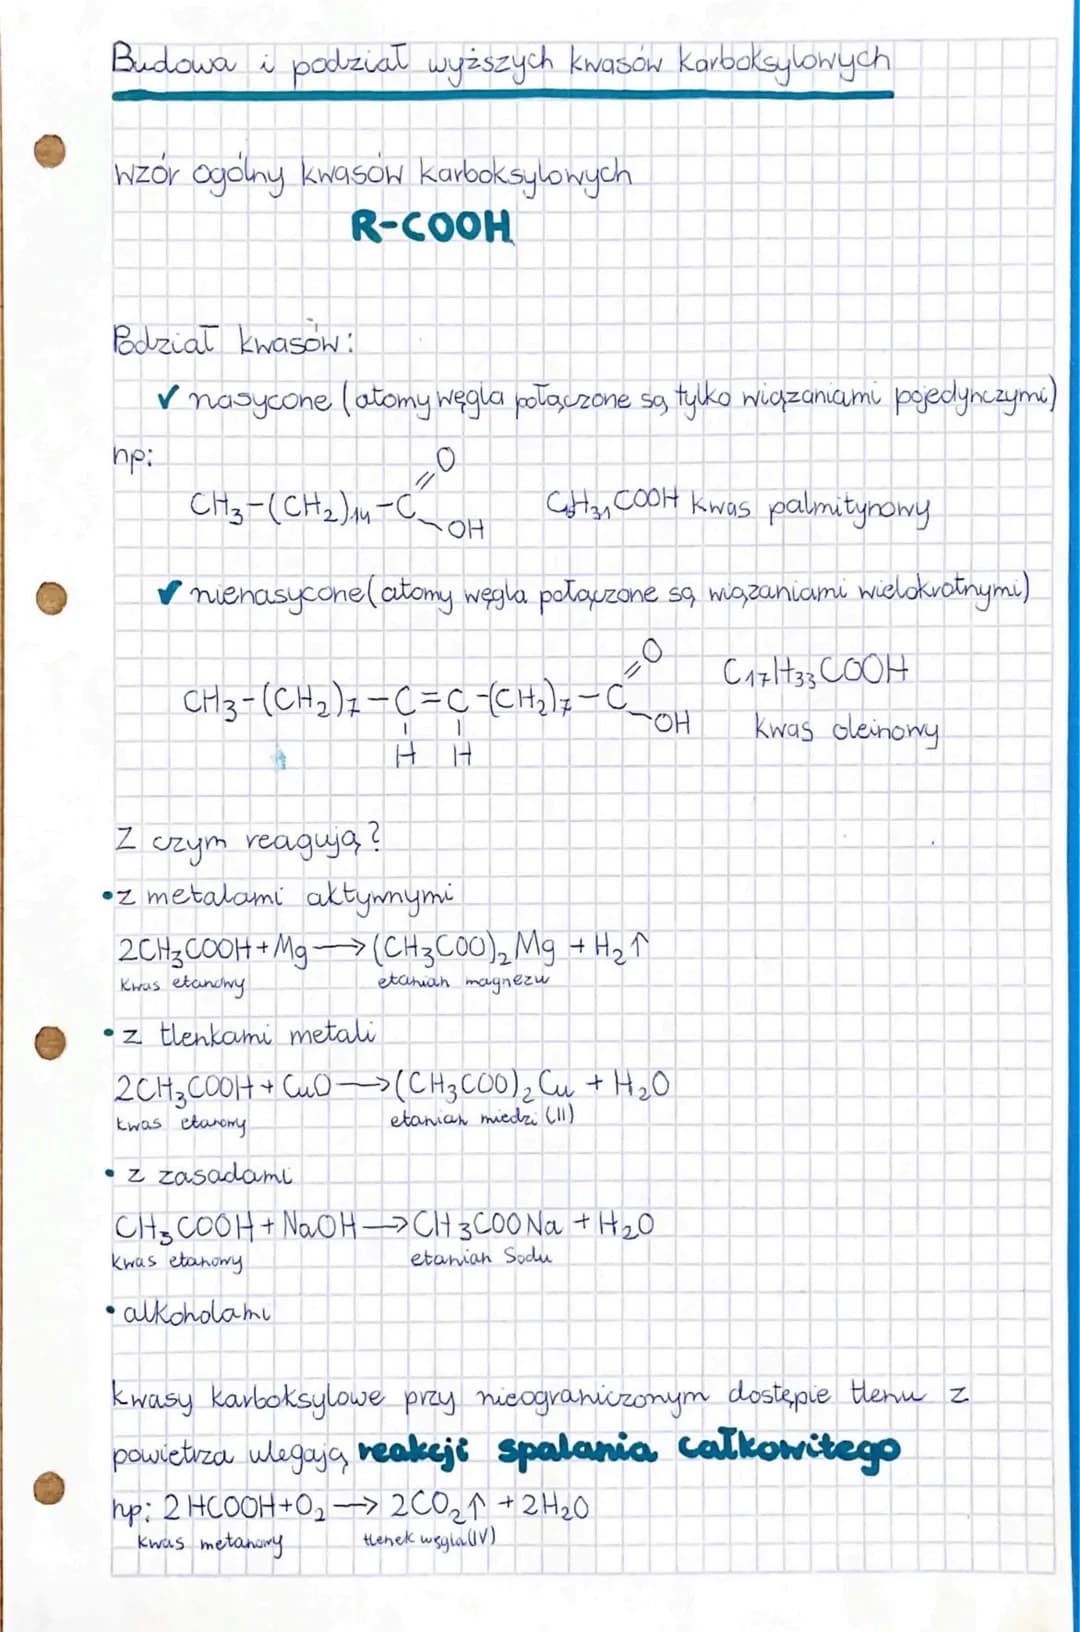 Budowa i podział wyższych kwasów karboksylowych
wzór ogólny kwasów karboksylowych
R-COOH
Podział kwasów:
✓ nasycone (atomy węgla połączone są tylko wiązaniami pojedynczymi)
np:
O
CH₃-(CH₂)₁₄-C
OH
COOH kwas palmitynowy
✓ nienasycone (atomy węgla połączone są wiązaniami wielokrotnymi)
O
CH₃-(CH₂)₇-C=C-(CH₂)₇-C
OH
H H
C₁₇H₃₃COOH
kwas oleinowy
Z czym reagują?
•z metalami aktywnymi
2CH₃COOH+Mg→(CH₃COO)₂Mg + H₂↑
kwas etanowy etanian magnezu
•z tlenkami metali
2CH₃COOH + CuO→(CH₃COO)₂Cu + H₂O
kwas etanowy etanian miedzi (II)
• z zasadami
CH₃COOH + NaOH→CH₃COONa + H₂O
kwas etanowy etanian Sodu
• alkoholami
kwasy karboksylowe przy nieograniczonym dostępie tlenu z
powietrza ulegają reakcji spalania całkowitego
np: 2HCOOH+O₂→ 2CO₂↑ + 2H₂O
kwas metanowy tlenek węgla(IV)